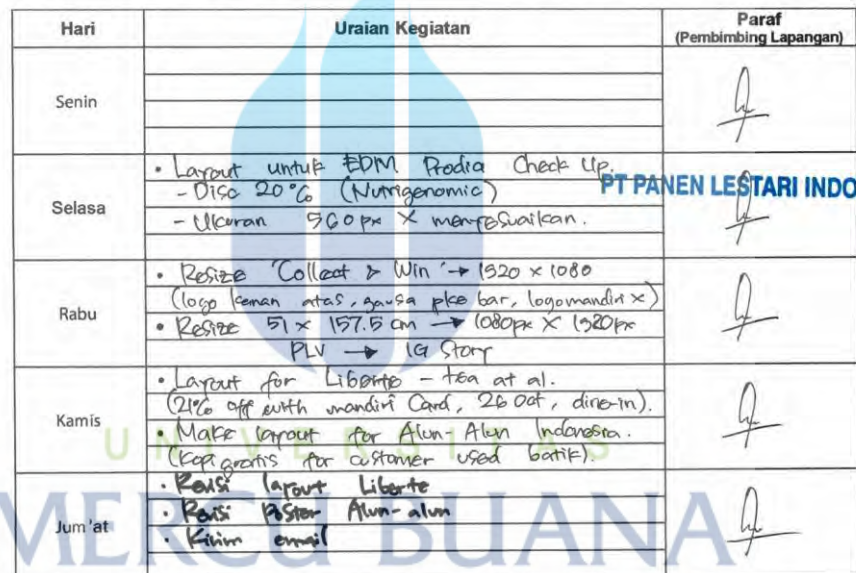 Hari Uraian Kegiatan Paraf
(Pembimbing Lapangan)
Senin
Selasa
• Layout untuk EDM Prodia Check Up.
- Disc 20% (Nutrigenomic)
- Ukuran 560px X menyesuaikan.
PT PANEN LESTARI INDO
Rabu
• Resize "Collect & Win" → 1920 x 1080
(logo kanan atas, gausa pke bar, logo mandiri x)
• Resize 51 x 157.5 cm → 1080px X 1920px
PLV → IG Story
Kamis
• Layout for Liberte - tea at al.
(21% off with mandiri Card, 26 Oct, dine-in).
• Make layout for Alun-Alun Indonesia.
(Kopi gratis for customer used batik).
UNIVERSITAS
Jum'at
• Revisi layout Liberte
• Revisi Poster Alun-alun
• Kirim email
MERCU BUANA